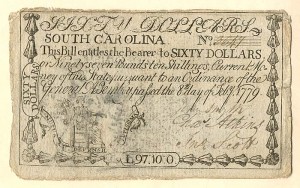 SIXTY DOLLARS.
SOUTH CAROLINA No
This Bill entitles the Bearer to SIXTY DOLLARS,
or Ninety seven Pounds ten Shillings, Current Mo-
ney of this State, pursuant to an Ordinance of the
General Assembly, passed the 8 day of Feb. 1779.
SIXTY
DOLLARS
Scott
L97.10.0